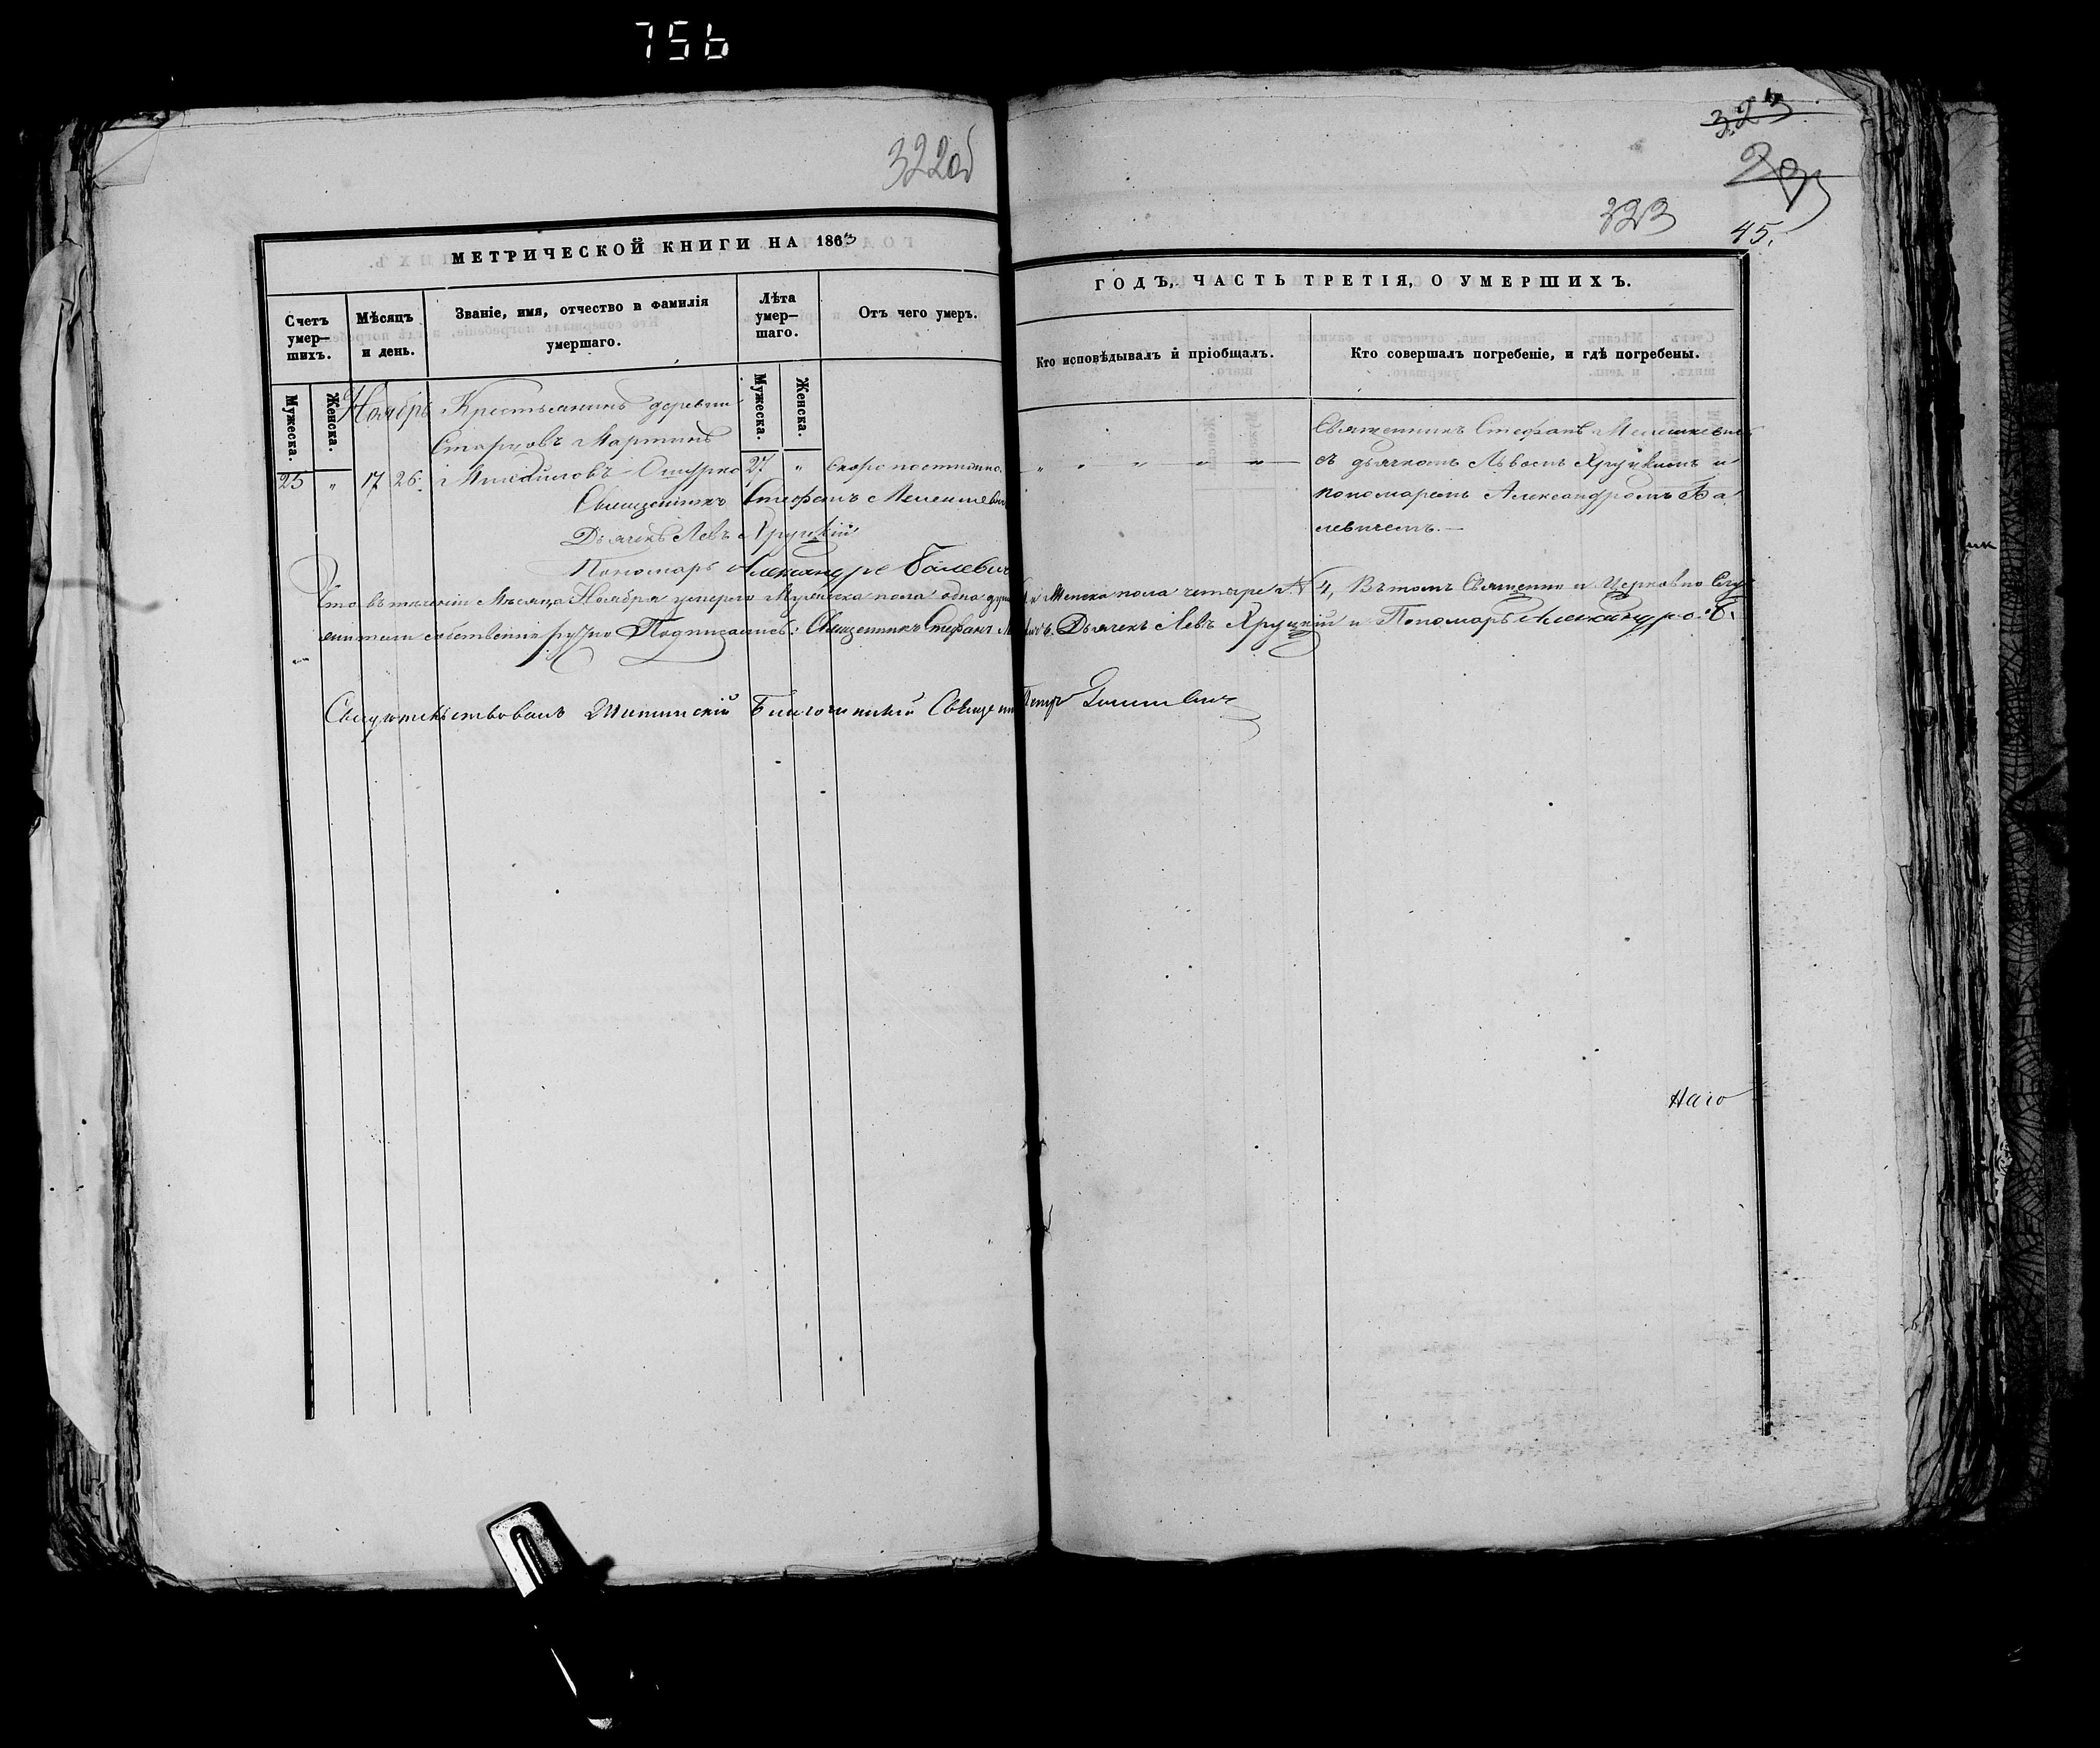 756
322об
323
23
323
45.
МЕТРИЧЕСКОЙ КНИГИ НА 1863
ГОДЪ, ЧАСТЬ ТРЕТІЯ, О УМЕРШИХЪ.
Счетъ умер–шихъ.
Мѣсяцъ и день.
Званіе, имя, отчество и фамилія умершаго.
Лѣта умер–шаго.
Отъ чего умеръ.
Кто исповѣдывалъ и пріобщалъ.
Кто совершалъ погребеніе, и гдѣ погребены.
Мужеска.
Женска.
Мужеска.
Женска.
Ноябрь
Крестьянинъ деревни
Старцовъ Мартинъ
25 " 17 26. Михайловъ Ошурко 27 " Скоропостижно.
" " " " "
Священникъ Стефанъ Мелешкевичъ
съ дьячкомъ Львомъ Хруцкимъ и
пономаремъ Александромъ Ба
левичемъ.—
Священникъ Стефанъ Мелешкевич
Дьячекъ Левъ Хруцкій
Пономарь Александръ Балевич
Что въ теченіи Мѣсяца Ноября умерло Мужеска пола одна душа и Женска пола четыре 4, Въ томъ Священно и Церковно Слу
жители собственноручно Подписались: Священникъ Стефанъ М. Дьячекъ Левъ Хруцкій и Пономарь Александръ Б.
Свидѣтельствовалъ Благочинный Священ Петръ
Наго